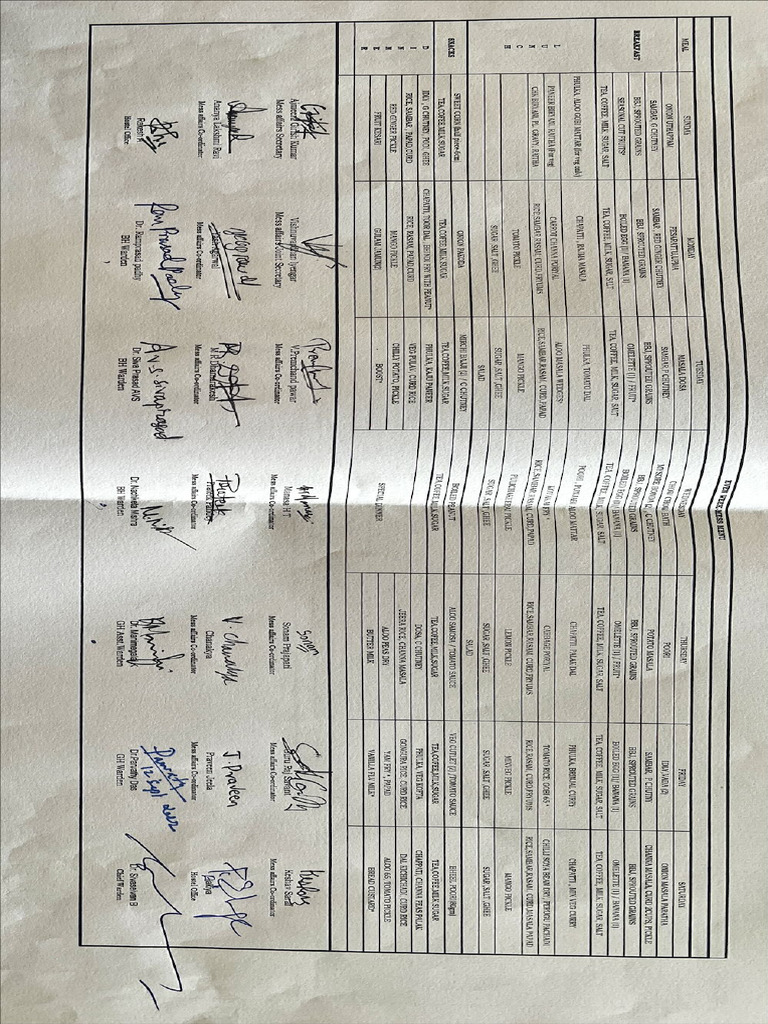 EVEN WEEK MESS MENU
MEAL SUNDAY MONDAY TUESDAY WEDNESDAY THURSDAY FRIDAY SATURDAY
BREAKFAST
ONION UTHAPPAM PESARATTU,UPMA MASALA DOSA CHOW CHOW BATH POORI DAL VADA (2) ONION MASALA PARATHA
SAMBAR, G CHUTNEY SAMBAR, RED GINGER CHUTNEY SAMBAR, P CHUTNEY MYSORE BONDA (2), C CHUTNEY POTATO MASALA SAMBAR, P CHUTNY CHANNA MASALA, CURD 2CUPS, PICKLE
BBJ, SPROUTED GRAINS BBJ, SPROUTED GRAINS BBJ, SPROUTED GRAINS BBJ, SPROUTED GRAINS BBJ, SPROUTED GRAINS BBJ, SPROUTED GRAINS BBJ, SPROUTED GRAINS
SEASONAL CUT FRUITS* BOILED EGG [1]/ BANANA [1] OMELETTE [1] / FRUIT* BOILED EGG [1]/ BANANA [1] OMELETTE [1] / FRUIT* BOILED EGG [1]/ BANANA [1] OMELETTE [1] / BANANA [1]
TEA, COFFEE, MILK, SUGAR, SALT TEA, COFFEE, MILK, SUGAR, SALT TEA, COFFEE, MILK, SUGAR, SALT TEA, COFFEE, MILK, SUGAR, SALT TEA, COFFEE, MILK, SUGAR, SALT TEA, COFFEE, MILK, SUGAR, SALT TEA, COFFEE, MILK, SUGAR, SALT
LUNCH
PHULKA, ALOO GOBI MATTAR (for veg only) CHAPATI, RAJMA MASALA PHULKA, TOMATO DAL POORI, PUNJABI ALOO MATTAR CHAPATI, PALAK DAL PHULKA, BRINJAL CURRY CHAPATTI, MIX VEG CURRY
PANEER BIRYANI, RAITHA (For veg) CARROT CHANNA PORIYAL ALOO MASALA WEDGES* CABBAGE PORIYAL TOMATO RICE, GOBI 65* CHILLI SOYA BEAN DRY, PERUGU PACHADI
CHK BIRYANI, PL GRAVY, RAITHA RICE,SAMBAR,RASAM, CURD,FRYUMS RICE,SAMBAR,RASAM, CURD,PAPAD RICE,SAMBAR,RASAM, CURD,PAPAD RICE,SAMBAR,RASAM, CURD,FRYUMS RICE,RASAM, CURD,FRYUMS RICE,SAMBAR,RASAM, CURD,MASALA PAPAD
TOMATO PICKLE MANGO PICKLE PULICHAKEERAI PICKLE LEMON PICKLE MIXVEG PICKLE MANGO PICKLE
SUGAR, SALT ,GHEE SUGAR, SALT ,GHEE SUGAR, SALT ,GHEE SUGAR, SALT ,GHEE SUGAR, SALT ,GHEE SUGAR, SALT ,GHEE
SALAD SALAD
SNACKS
SWEET CORN ONION PAGODA MIRCHI BAJJI, C CHUTNEY BOILED PEANUT ALOO SAMOSA / TOMATO SAUCE VEG CUTLET (2), TOMATO SAUCE BHEL POORI
TEA,COFFEE,MILK,SUGAR TEA,COFFEE,MILK,SUGAR TEA,COFFEE,MILK,SUGAR TEA, COFFEE,MILK,SUGAR TEA,COFFEE,MILK,SUGAR TEA,COFFEE,MILK,SUGAR TEA,COFFEE,MILK,SUGAR
DINNER
IDLI, G CHUTNEY, PODI, GHEE CHAPATTI, TOOR DAL, BHINDI FRY WITH PEANUT* PHULKA, KAJU PANEER SPECIAL DINNER DOSA, C CHUTNEY PHULKA, VEG KOFTA CHAPPATI, CHANNA PEAS PALAK
RICE, SAMBAR, PAPAD,CURD RICE, RASAM, PAPAD,CURD VEG PULAV, CURD RICE JEERA RICE, CHANNA MASALA GONGURA RICE, CURD RICE DAL KICHICHADI, CURD RICE
RED GINGER PICKLE MANGO PICKLE CHILLY POTATO, PICKLE ALOO PEAS DRY YAM FRY*, PAPAD ALOO 65, TOMATO PICKLE
FRUIT KESARI GULAB JAMUN[1] BOOST* BUTTER MILK VANILLA FLV MILK* BREAD CUSTARD*
Ajmeera Girish Kumar Vishnuvardhan Iyengar V.Premchand pawar Manasa H T Sonam Prajapati Guru Raj Sarlani Keshav Saraff
Mess affairs Secretary Mess affairs Joint Secretary Mess affairs Co-ordinator Mess affairs Co-ordinator Mess affairs Co-ordinator Mess affairs Co-ordinator Mess affairs Co-ordinator
Ananya Lakshmi Ravi V. Chanakya J. Praveen
Chanakya Praveen Jeela
Mess affairs Co-ordinator Mess affairs Co-ordinator Mess affairs Co-ordinator Mess affairs Co-ordinator Mess affairs Co-ordinator Mess affairs Co-ordinator Hostel Office
Ram Prasad Padhy A v s. sivaprasad 12 Sept 2022
Rakesh A Dr. Ramprasad padhy Dr. Siva Prasad AVS Dr. Narttketa Mishra Dr. Mariimegarajk Dr Parvathy Das Dr. Sivaselvan B
Hostel Office BH Warden BH Warden BH Warden GH Asst.Warden GH Warden Chief Warden